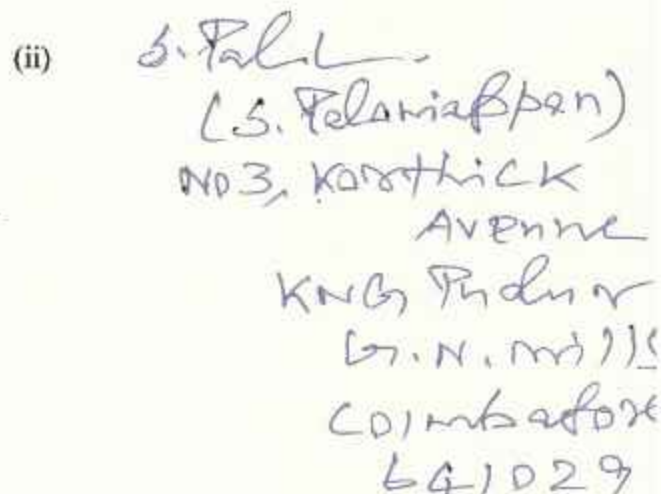 (ii) S. Pal
(S. Palaniappan)
NO 3, Karthick
Avenue
KNG Pudur
G.N. Mills
Coimbatore
641029